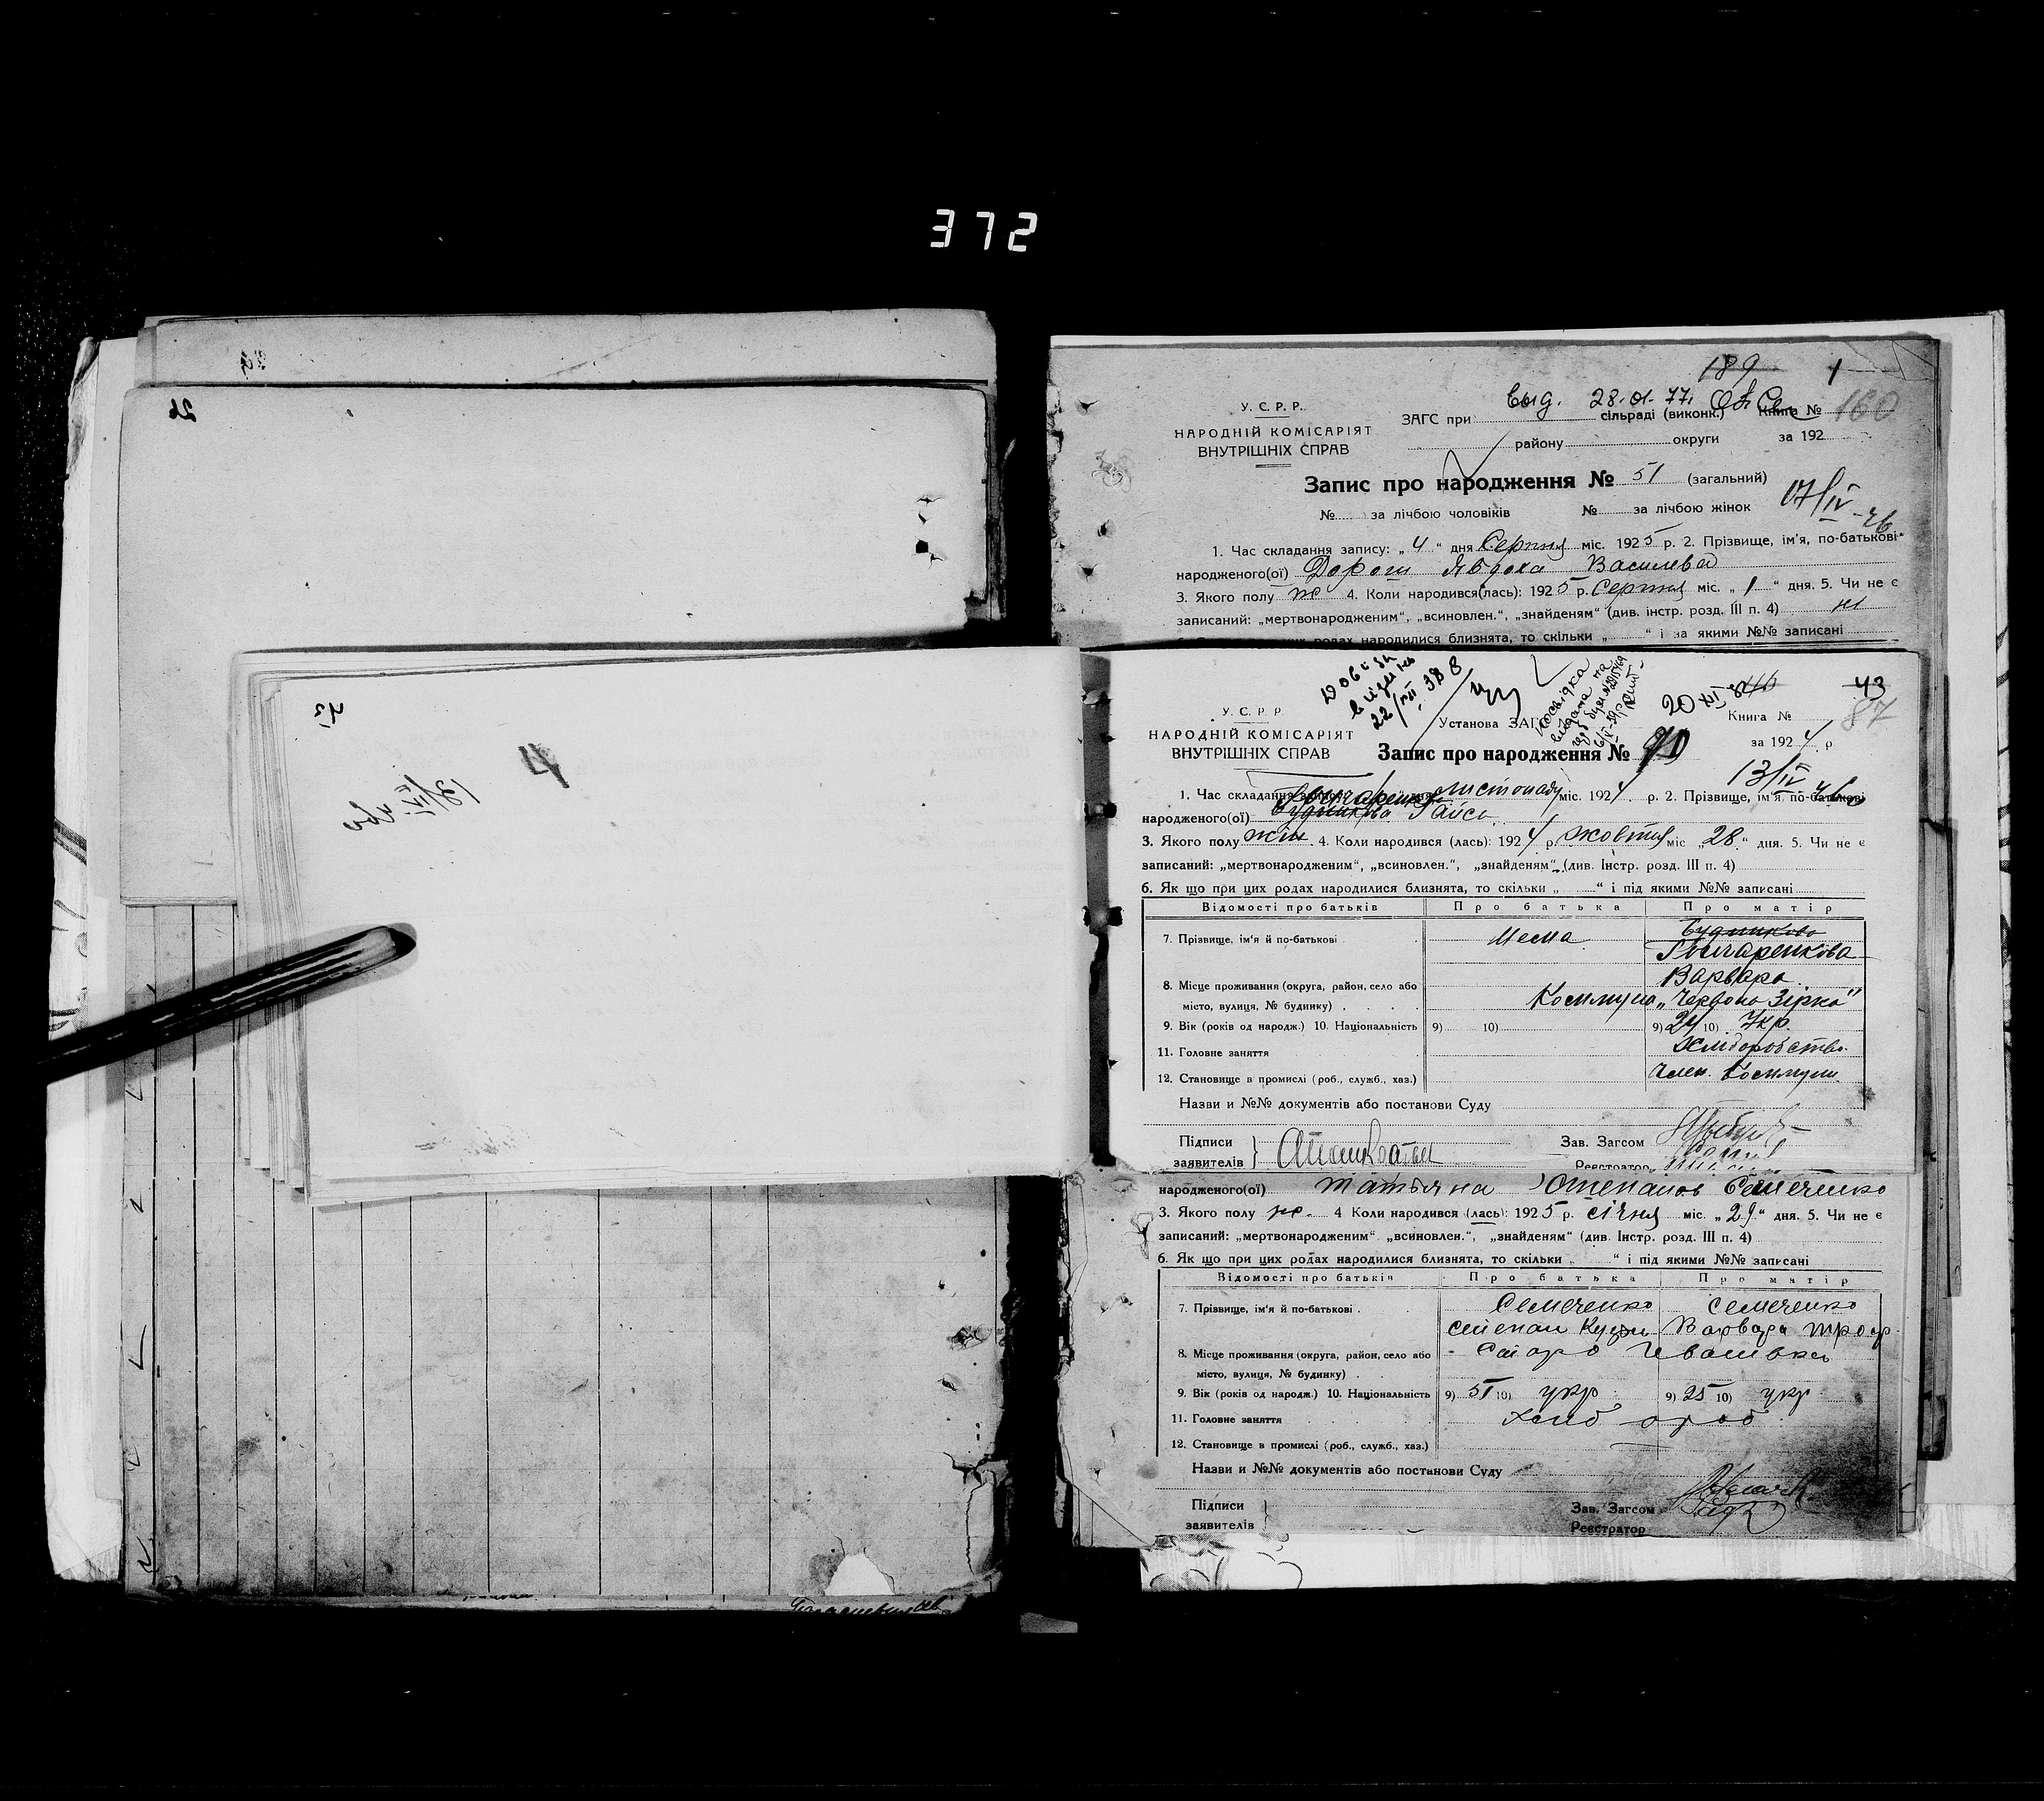 372
189 1
Выд. 28.01.77.
У. С. Р. Р.
ЗАГС при сільраді (виконк.) Книга № 160
НАРОДНІЙ КОМІСАРІЯТ
району округи за 192
ВНУТРІШНІХ СПРАВ
Запис про народження № 51 (загальний)
№ за лічбою чоловіків № за лічбою жінок
07/IV-46
1. Час складання запису: „4“ дня Серпня міс. 1925 р. 2. Прізвище, ім'я, по-батькові
народженого(ої) Дорош Явдоха Василева
3. Якого полу ж 4. Коли народився(лась): 1925 р. Серпня міс. „1“ дня. 5. Чи не є
записаний: „мертвонародженим“, „всиновлен.“, „знайденям“ (див. інстр. розд. III п. 4) ні
родах народилися близнята, то скільки „ “ і за якими №№ записані
43
87
У. С. Р. Р.
Установа ЗАГС Книга №
НАРОДНІЙ КОМІСАРІЯТ
за 1924 р
ВНУТРІШНІХ СПРАВ
Запис про народження №
1. Час складання листопаду міс. 1924 р. 2. Прізвище, ім'я, по-батькові
народженого(ої) Раїса
3. Якого полу жін 4. Коли народився (лась): 1924 р. жовтня міс „28“ дня. 5. Чи не є
записаний: „мертвонародженим“, „всиновлен.“, „знайденям“ (див. Інстр. розд. III п. 4)
6. Як що при цих родах народилися близнята, то скільки „ “ і під якими №№ записані
Відомості про батьків Про батька Про матір
7. Прізвище, ім'я й по-батькові Нема Будникова
Гончаренкова
Варвара
8. Місце проживання (округа, район, село або
місто, вулиця, № будинку) Коммуна „Червона Зірка“
9. Вік (років од народж.) 10. Національність 9) 10) 9) 24 10) Укр.
11. Головне заняття Хліборобство
12. Становище в промислі (роб., служб., хаз.) Член Коммуни
Назви и №№ документів або постанови Суду
Підписи Зав. Загсом
заявителів Реєстратор
народженого(ої) Татьяна Степанов Семеченко
3. Якого полу ж. 4 Коли народився (лась): 1925 р. січня міс. „29“ дня. 5. Чи не є
записаний: „мертвонародженим“ „всиновлен.“, „знайденям“ (див. Інстр. розд. III п. 4)
6. Як що при цих родах народилися близнята, то скільки „ “ і під якими №№ записані
Відомості про батьків Про батька Про матір
7. Прізвище, ім'я й по-батькові Семеченко Семеченко
Степан Кузьм Варвара Троф
8. Місце проживання (округа, район, село або
місто, вулиця, № будинку)
9. Вік (років од народж.) 10. Національність 9) 51 10) укр 9) 25 10) укр
11. Головне заняття хлібороб
12. Становище в промислі (роб., служб., хаз.)
Назви и №№ документів або постанови Суду
Підписи Зав. Загсом
заявителів Реєстратор